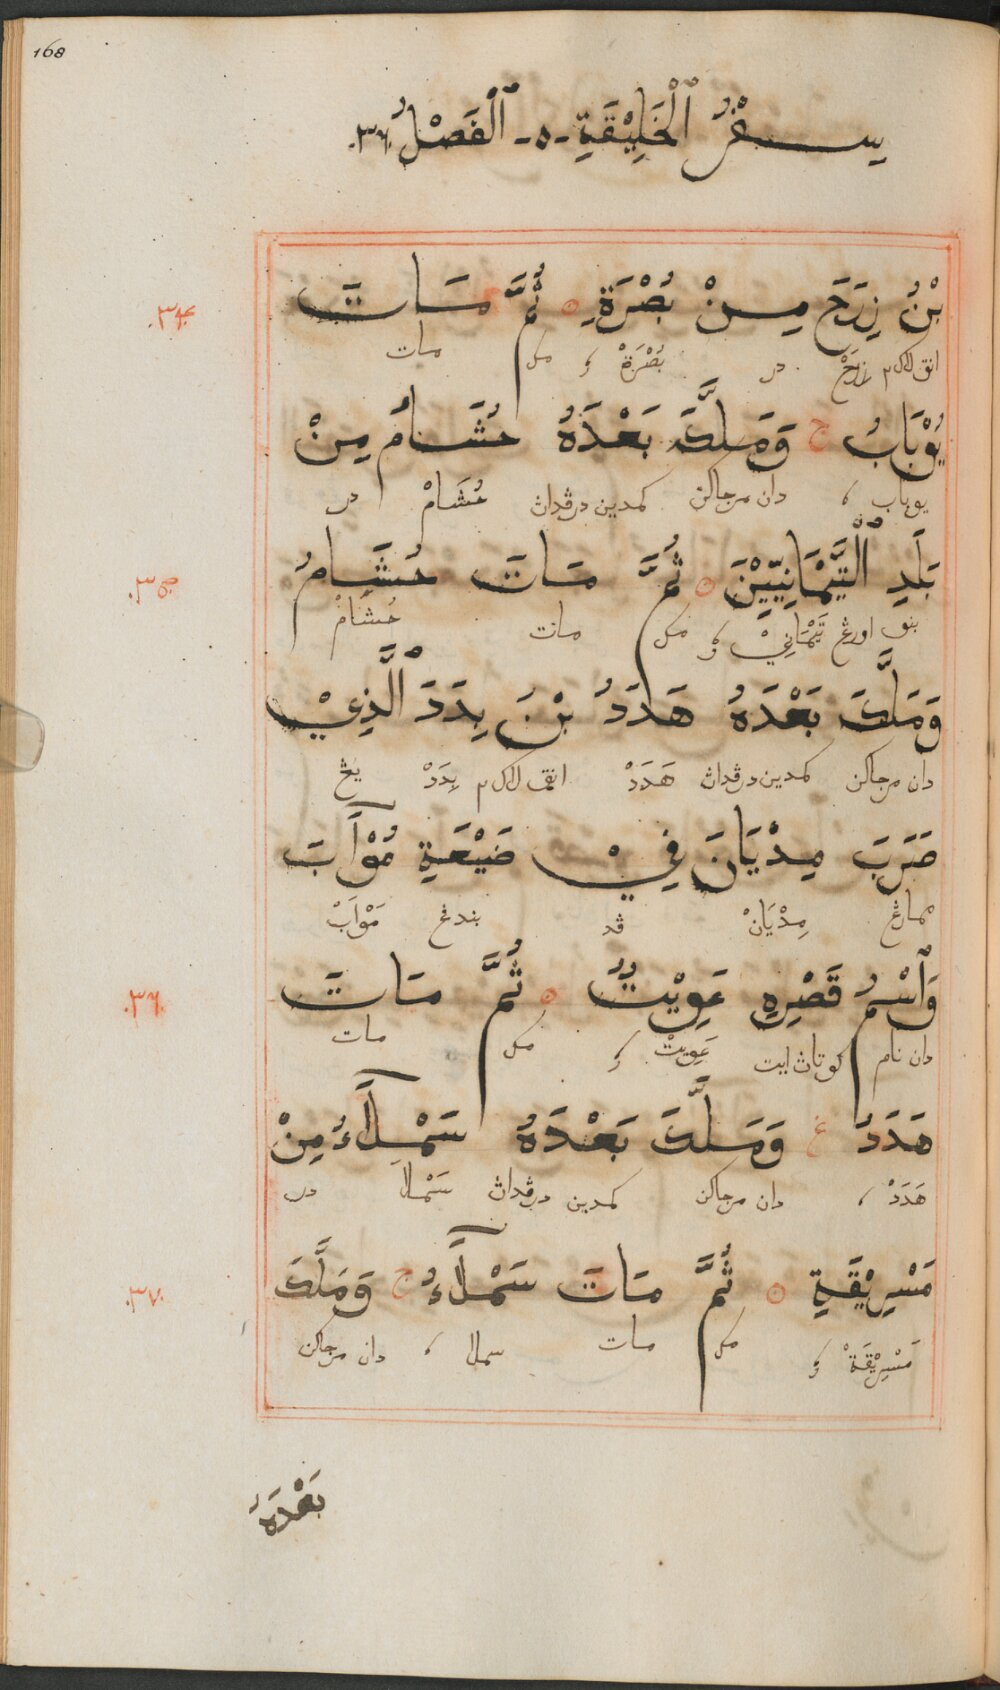 168
سِفْرُ ٱلْخَلِيْقَةِ -٥- ٱلْفَصْلُ ٣٦.
بْنُ زِرَحَ مِنْ بُصْرَةِ ۞ ثُمَّ مَاتَ
.٣٤.
انق لاک٢ زِرَحْ در بُصْرَةْ ؤ مك مات
يُوْبَابُ ج وَمَلَّكَ بَعْدَهُ حُشَامُ مِنْ
يوباب ، دان مرجاكن كمدين درڤداڽ حُشَامْ در
بَلَدِ ٱلتَّيْمَانِيِّيْنَ ۞ ثُمَّ مَاتَ حُشَامُ
.٣٥.
بنو اورڠ تَيْمَانِيْ ؤ مك مات حُشَامْ
وَمَلَّكَ بَعْدَهُ هَدَدُ بْنَ بِدَدَ ٱلَّذِيْ
دان مرجاكن كمدين درڤداڽ هَدَدْ انق لاک٢ بِدَدْ يڠ
ضَرَبَ مِدْيَانَ فِيْ ضَيْعَةِ مُوْآبَ
ممارڠ مِدْيَانْ ڤد بندڠ مَوْآبْ
وَٱسْمُ قَصْرِهِ عَوِيْتُ ۞ ثُمَّ مَاتَ
.٣٦.
دان نام كوتاڽ ايت عَوِيتْ ؤ مك مات
هَدَدُ ع وَمَلَّكَ بَعْدَهُ سَمْلَآءُ مِنْ
هَدَدْ ، دان مرجاكن كمدين درڤداڽ سَمْلا در
مَسْرِيْقَةِ ۞ ثُمَّ مَاتَ سَمْلَآءُ ج وَمَلَّكَ
.٣٧.
مَسْرِيْقَةْ ؤ مك مات سملا ، دان مرجاكن
بَعْدَهُ